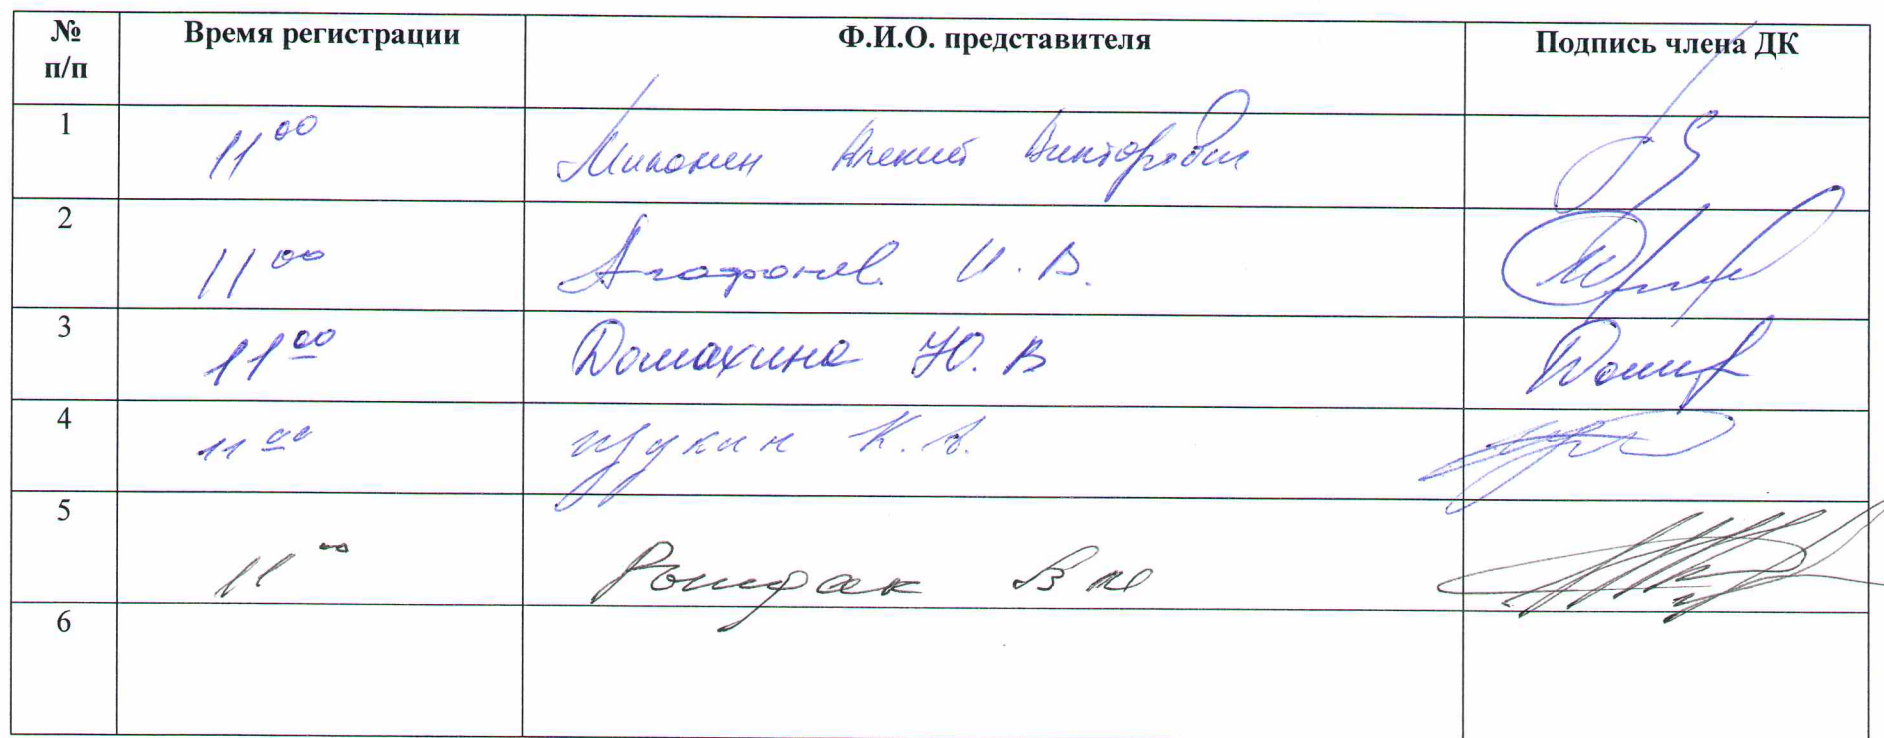 № п/п Время регистрации Ф.И.О. представителя Подпись члена ДК
1 11 00 Миконен Алексей Викторович
2 11 00 Агафонов И. В.
3 11 00 Домахина Ю. В
4 11 00 Щукин К. А.
5 11 00 В
6